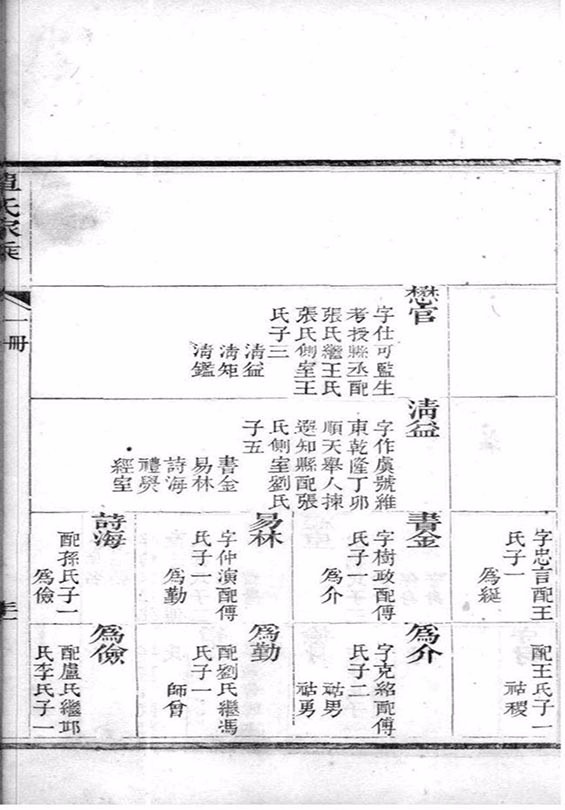 懋官
字仕可監生
考授縣丞配
張氏繼王氏
張氏側室王
氏子三
清益
清矩
清鑑
清益
字作虞號維
東乾隆丁卯
順天舉人揀
選知縣配張
氏側室劉氏
子五
書金
易林
詩海
禮與
經室
字忠言配王
氏子一
爲綖
書金
字樹政配傅
氏子一
爲介
易林
字仲演配傅
氏子一
爲勤
詩海
配孫氏子一
爲儉
配王氏子一
祜稷
爲介
字克紹配傅
氏子二
祜男
祜勇
爲勤
配劉氏繼馮
氏子一
師曾
爲儉
配盧氏繼邱
氏李氏子一
氏家乘
一冊